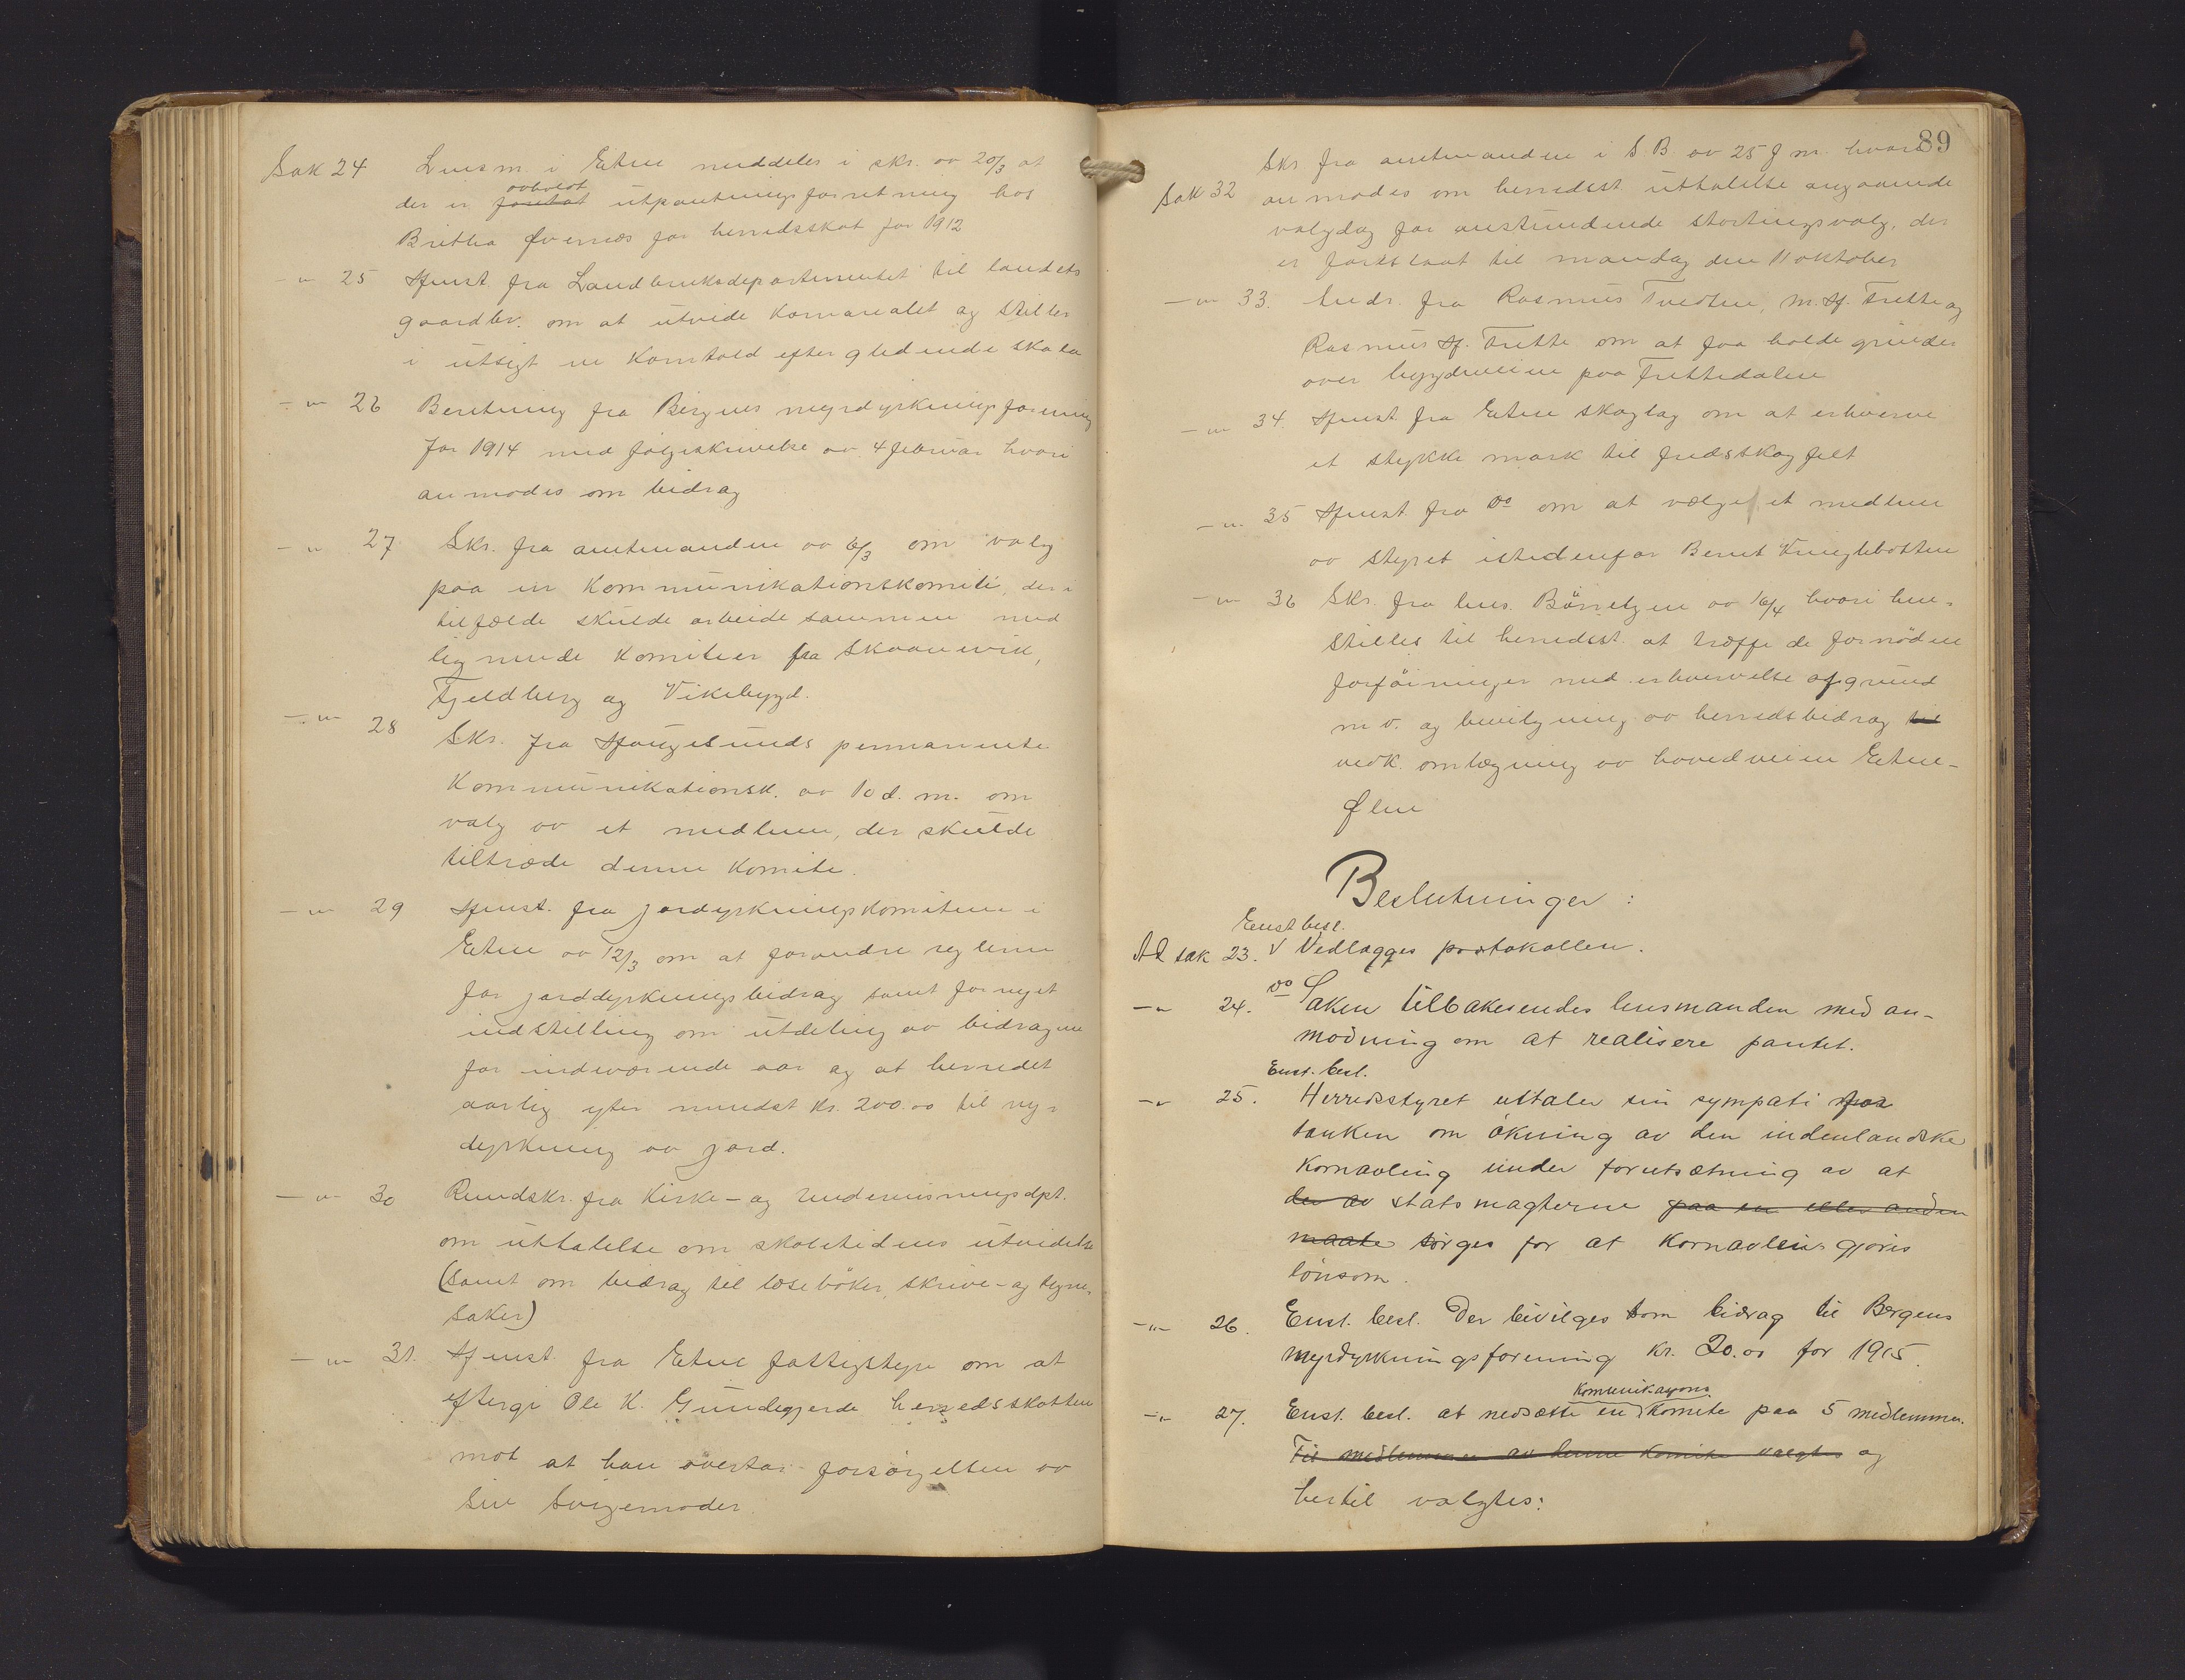 Sak 24 Lensm. i Etne meddeles i skr. av 20/3 at
avholdt
der er foretat utpantningsforretning hos
Britha Øvernæs for herredsskat for 1912
-"- 25 Henst. fra Landbruksdepartementet til landets
gaardbr. om at utvide kornarealet og stiller
i utsigt en korntold efter glidende skala
-"- 26 Beretning fra Bergens myrdyrkningsforening
for 1914 med følgeskrivelse av 4 februar hvori
anmodes om bidrag
-"- 27 Skr. fra amtmanden av 6/3 om valg
paa en kommunikationskomite, der i
tilfælde skulde arbeide sammen med
lignende komiteer fra Skaanevik,
Fjeldberg og Vikebygd.
-"- 28 Skr. fra Haugesunds permanente
Kommunikationsk. av 10 d. m. om
valg av et medlem, der skulde
tiltræde denne komite.
-"- 29 Henst. fra jordyrkningskomiteen i
Etne av 12/3 om at forandre reglerne
for jorddyrkningsbidrag samt fornyet
indstilling om utdeling av bidragene
for indeværende aar og at herredet
aarlig yter mindst kr. 200.00 til ny-
dyrkning av jord.
-"- 30 Rundskr. fra Kirke- og Undervisningsdpt.
om uttalelse om skoletidens utvidelse
(samt om bidrag til læsebøker, skrive- og tegne-
saker)
-"- 31. Henst. fra Etne fattigstyre om at
eftergi Ole K. Gundegjerde herredsskatten
mot at han overtar forsørgelsen av
sin svigermoder.
89
Skr. fra amtmanden i S. B. av 25 f. m. hvori
Sak 32 anmodes om herredsst. uttalelse angaaende
valgdag for anstundende stortingsvalg, der
er foreslaat til mandag den 11 oktober
-"- 33. Andr. fra Rasmus Tvedten, M. H. Frette og
Rasmus H. Frette om at faa holde grinder
over bygdeveien paa Frettedalen
-"- 34. Henst. fra Etne skoglag om at erhverve
et stykke mark til fredsskogfelt
-"- 35 Henst. fra do om at vælge et medlem
av styret istedenfor Bernt Kringlebotten
-"- 36 Skr. fra lens. Børretzen av 16/4 hvori hen-
stilles til herredsst. at træffe de fornødne
forføininger med erhvervelse af grund
m. v. og bevilgning av herredsbidrag til
vedk. omlægning av hovedveien Etne-
Ølen
Beslutninger:
Enst besl.
Ad sak 23. V Vedlægges protokollen.
-"- 24. do Saken tilbakesendes lensmanden med an-
modning om at realisere pantet.
Enst. besl.
-"- 25. Herredsstyret uttaler sin sympati for
tanken om økning av den indenlandske
kornavling under forutsætning av at
der av statsmagterne paa en eller anden
maate sørges for at kornavlen gjøres
lønsom.
-"- 26. Enst. besl. Der bevilges som bidrag til Bergens
myrdyrkningsforening kr. 20.00 for 1915.
Komunikasjons
-"- 27. Enst. besl. at nedsætte en komite paa 5 medlemmer.
Til medlemmer av denne komite valgtes og
hertil valgtes: